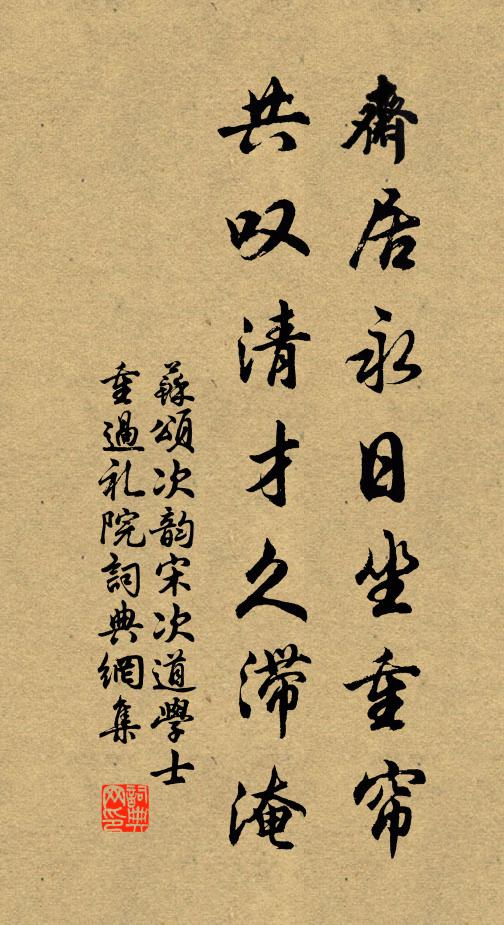 齋居永日坐重帘
共叹清才久滞淹
蘇頌次韵宋次道學士
重過礼院詞典網集
詞典网印